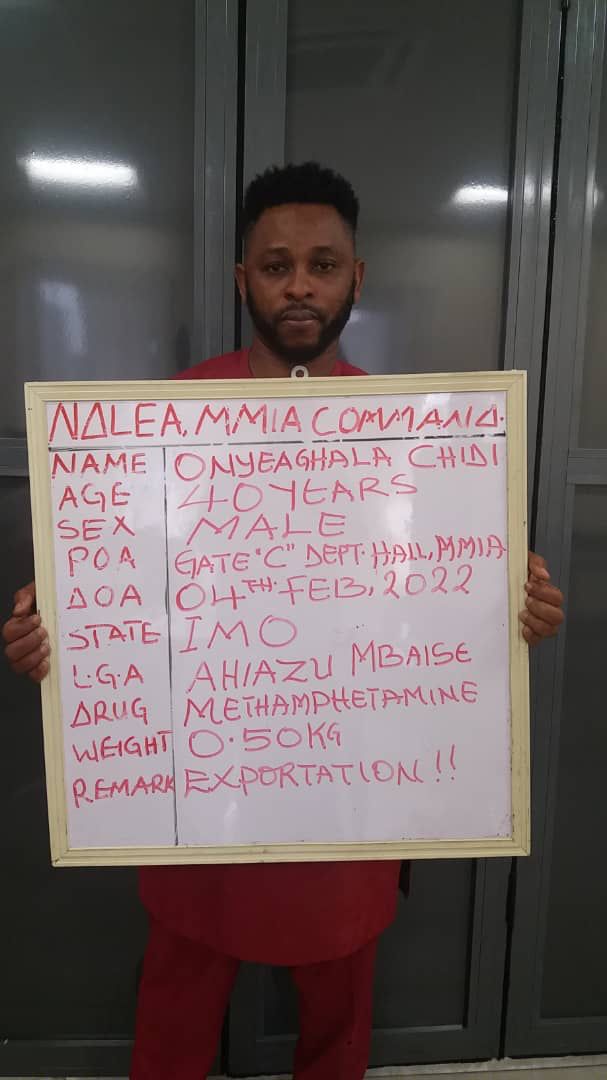 NDLEA, MMIA COMMAND.
NAME ONYEAGHALA CHIDI
AGE 40 YEARS
SEX MALE
POA GATE "C" DEPT. HALL, MMIA
DOA 04TH. FEB, 2022
STATE IMO
L.G.A AHIAZU MBAISE
DRUG METHAMPHETAMINE
WEIGHT 0.50KG
REMARK EXPORTATION!!